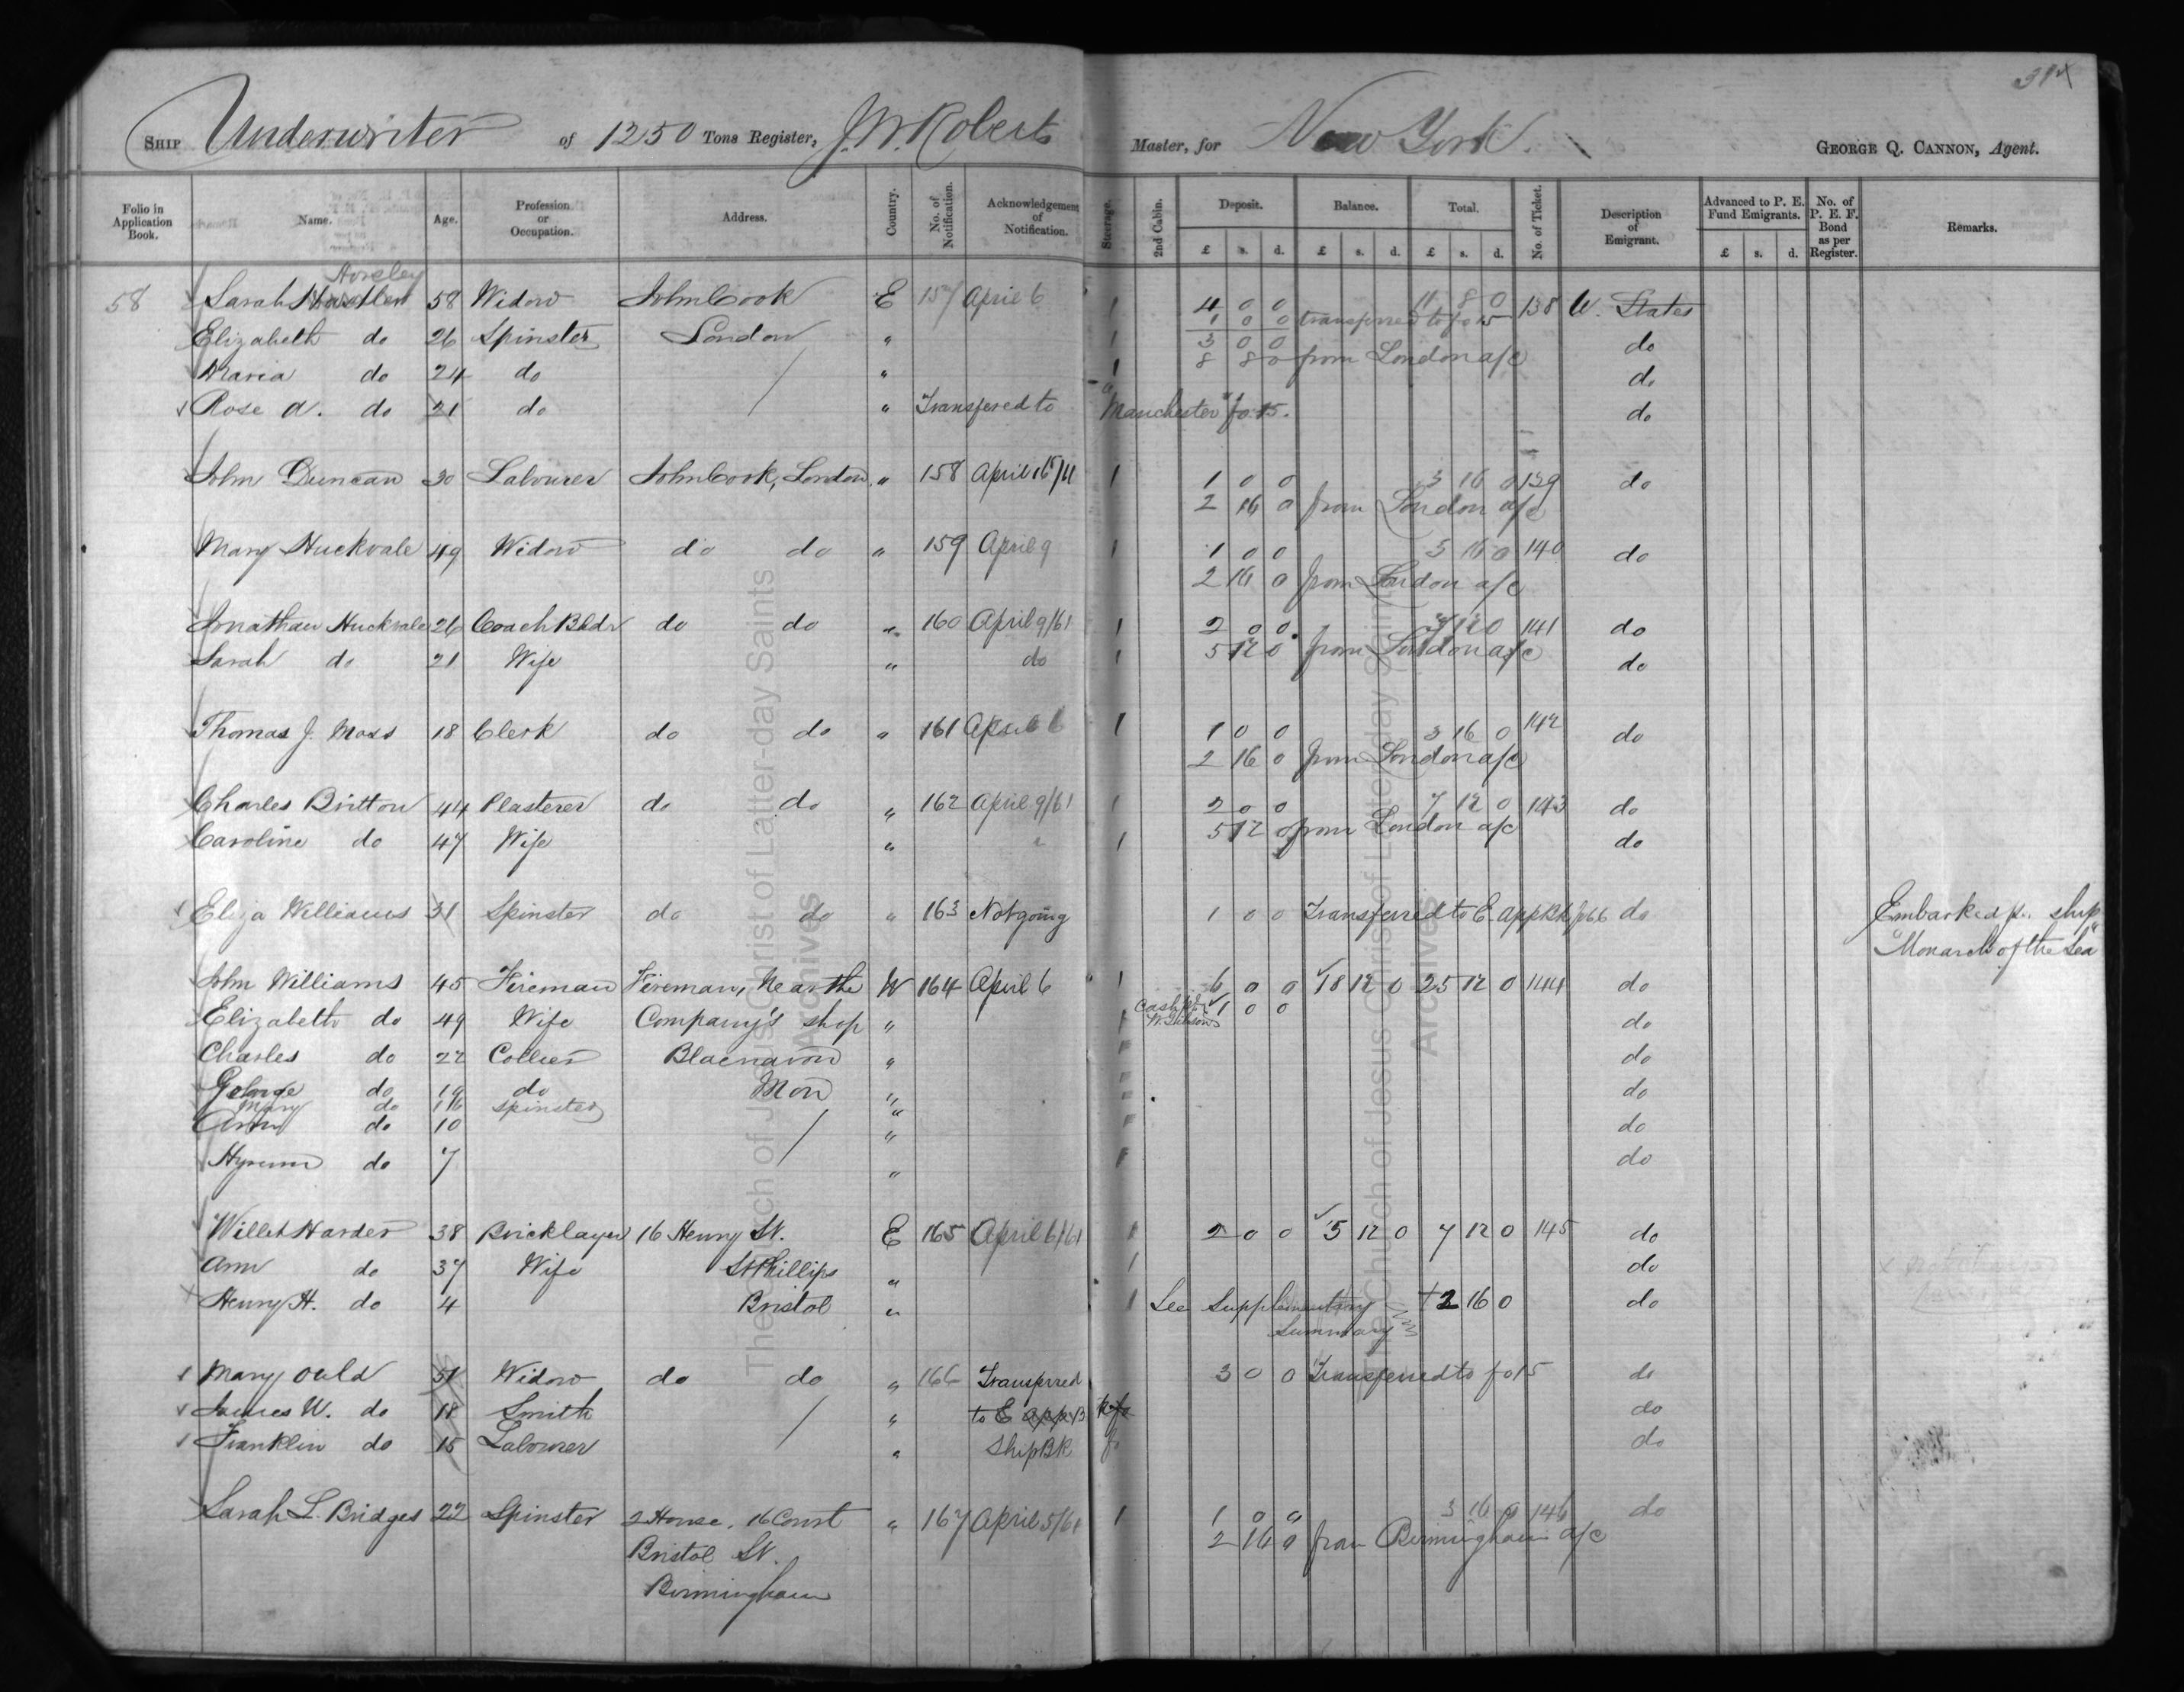 314
SHIP Underwriter of 1250 Tons Register, J. W. Roberts Master, for New York. GEORGE Q. CANNON, Agent.
Folio in Application Book. Name. Age. Profession or Occupation. Address. Country. No. of Notification. Acknowledgement of Notification. Steerage. 2nd Cabin. Deposit. Balance. Total. No. of Ticket. Description of Emigrant. Advanced to P. E. Fund Emigrants. No. of P. E. F. Bond as per Register. Remarks.
£ s. d. £ s. d. £ s. d. £ s. d.
58 Sarah 58 Widow John Cook E 157 April 6 1 4 0 0 11 8 0 138 U. States
1 0 0 transferred to fo 15
Elizabeth do 26 Spinster London " 1 3 0 0 do
Maria do 24 do " 1 8 8 0 from London a/c do
Rose A. do 21 do " Transfered to Manchester fo. 15. do
John Duncan 30 Labourer John Cook, London " 158 April 1 1 0 0 3 16 0 139 do
2 16 0 from London a/c
Mary Huckvale 49 Widow do do " 159 April 9 1 1 0 0 3 16 0 140 do
2 16 0 from London a/c
Jonathan Huckvale 26 Coach Bldr do do " 160 April 9/61 1 2 0 0 7 12 0 141 do
Sarah do 21 Wife " do 1 5 12 0 from London a/c do
Thomas J. Moss 18 Clerk do do " 161 April 6 1 1 0 0 3 16 0 142 do
2 16 0 from London a/c
Charles Britton 44 Plasterer do do " 162 April 9/61 1 2 0 0 7 12 0 143 do
Caroline do 47 Wife " " 1 5 12 0 from London a/c do
Eliza Williams 31 Spinster do do " 163 Not going 1 0 0 Transferred to E. App Bk fo 66 do Embarked pr. ship
"Monarch of the Sea"
John Williams 45 Fireman Fireman, Near the W 164 April 6 1 6 0 0 18 12 0 25 12 0 144 do
Elizabeth do 49 Wife Company's shop " 1 Cash 1 0 0 do
Charles do 22 Collier Blaenavon " 1 do
George do 19 do Mon " 1 do
Mary do 16 spinster "
Ann do 10 " 1 do
Hyrum do 7 " 1 do
Willet Harder 38 Bricklayer 16 Henry St. E 165 April 6/61 1 2 0 0 5 12 0 7 12 0 145 do
Ann do 37 Wife St Phillips " 1 do
Henry H. do 4 Bristol " 1 See Supplementary 2 16 0 do
Summary
Mary Ould 51 Widow do do " 166 Transferred 3 0 0 Transferred to fo 15 do
James W. do 18 Smith " to E app B k fo do
Franklin do 15 Labourer " Ship BK fo do
Sarah L. Bridges 22 Spinster 2 House, 16 Court " 167 April 5/61 1 1 0 0 3 16 0 146 do
Bristol St. 2 16 0 from Birmingham a/c
Birmingham
The Church of Jesus Christ of Latter-day Saints
Archives
The Church of Jesus Christ of Latter-day Saints
Archives